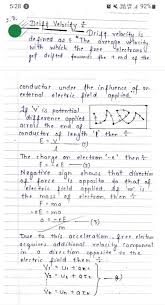 5:28
92%
Drift Velocity :-
Drift velocity is
defined as "The average velocity
with which the free electrons
get drifted towards the +ve end of the
conductor under the influence of an
external electric field applied.
If 'V' is potential
difference applied
across the end of
conductor of length 'l' then :-
E = V/l (1)
The charge on electron '-e' then :-
F = -eE (2)
Negative sign shows that direction
of force is opposite to that of
electric field applied. If 'm' is
the mass of electron then :-
F = ma
-eE = ma
a = -eE/m (3)
Due to this acceleration, free electron
acquires additional velocity component
in a direction opposite to the
electric field then
V₁ = u₁ + aτ₁
V₂ = u₂ + aτ₂ (4)
Vₙ = uₙ + aτₙ